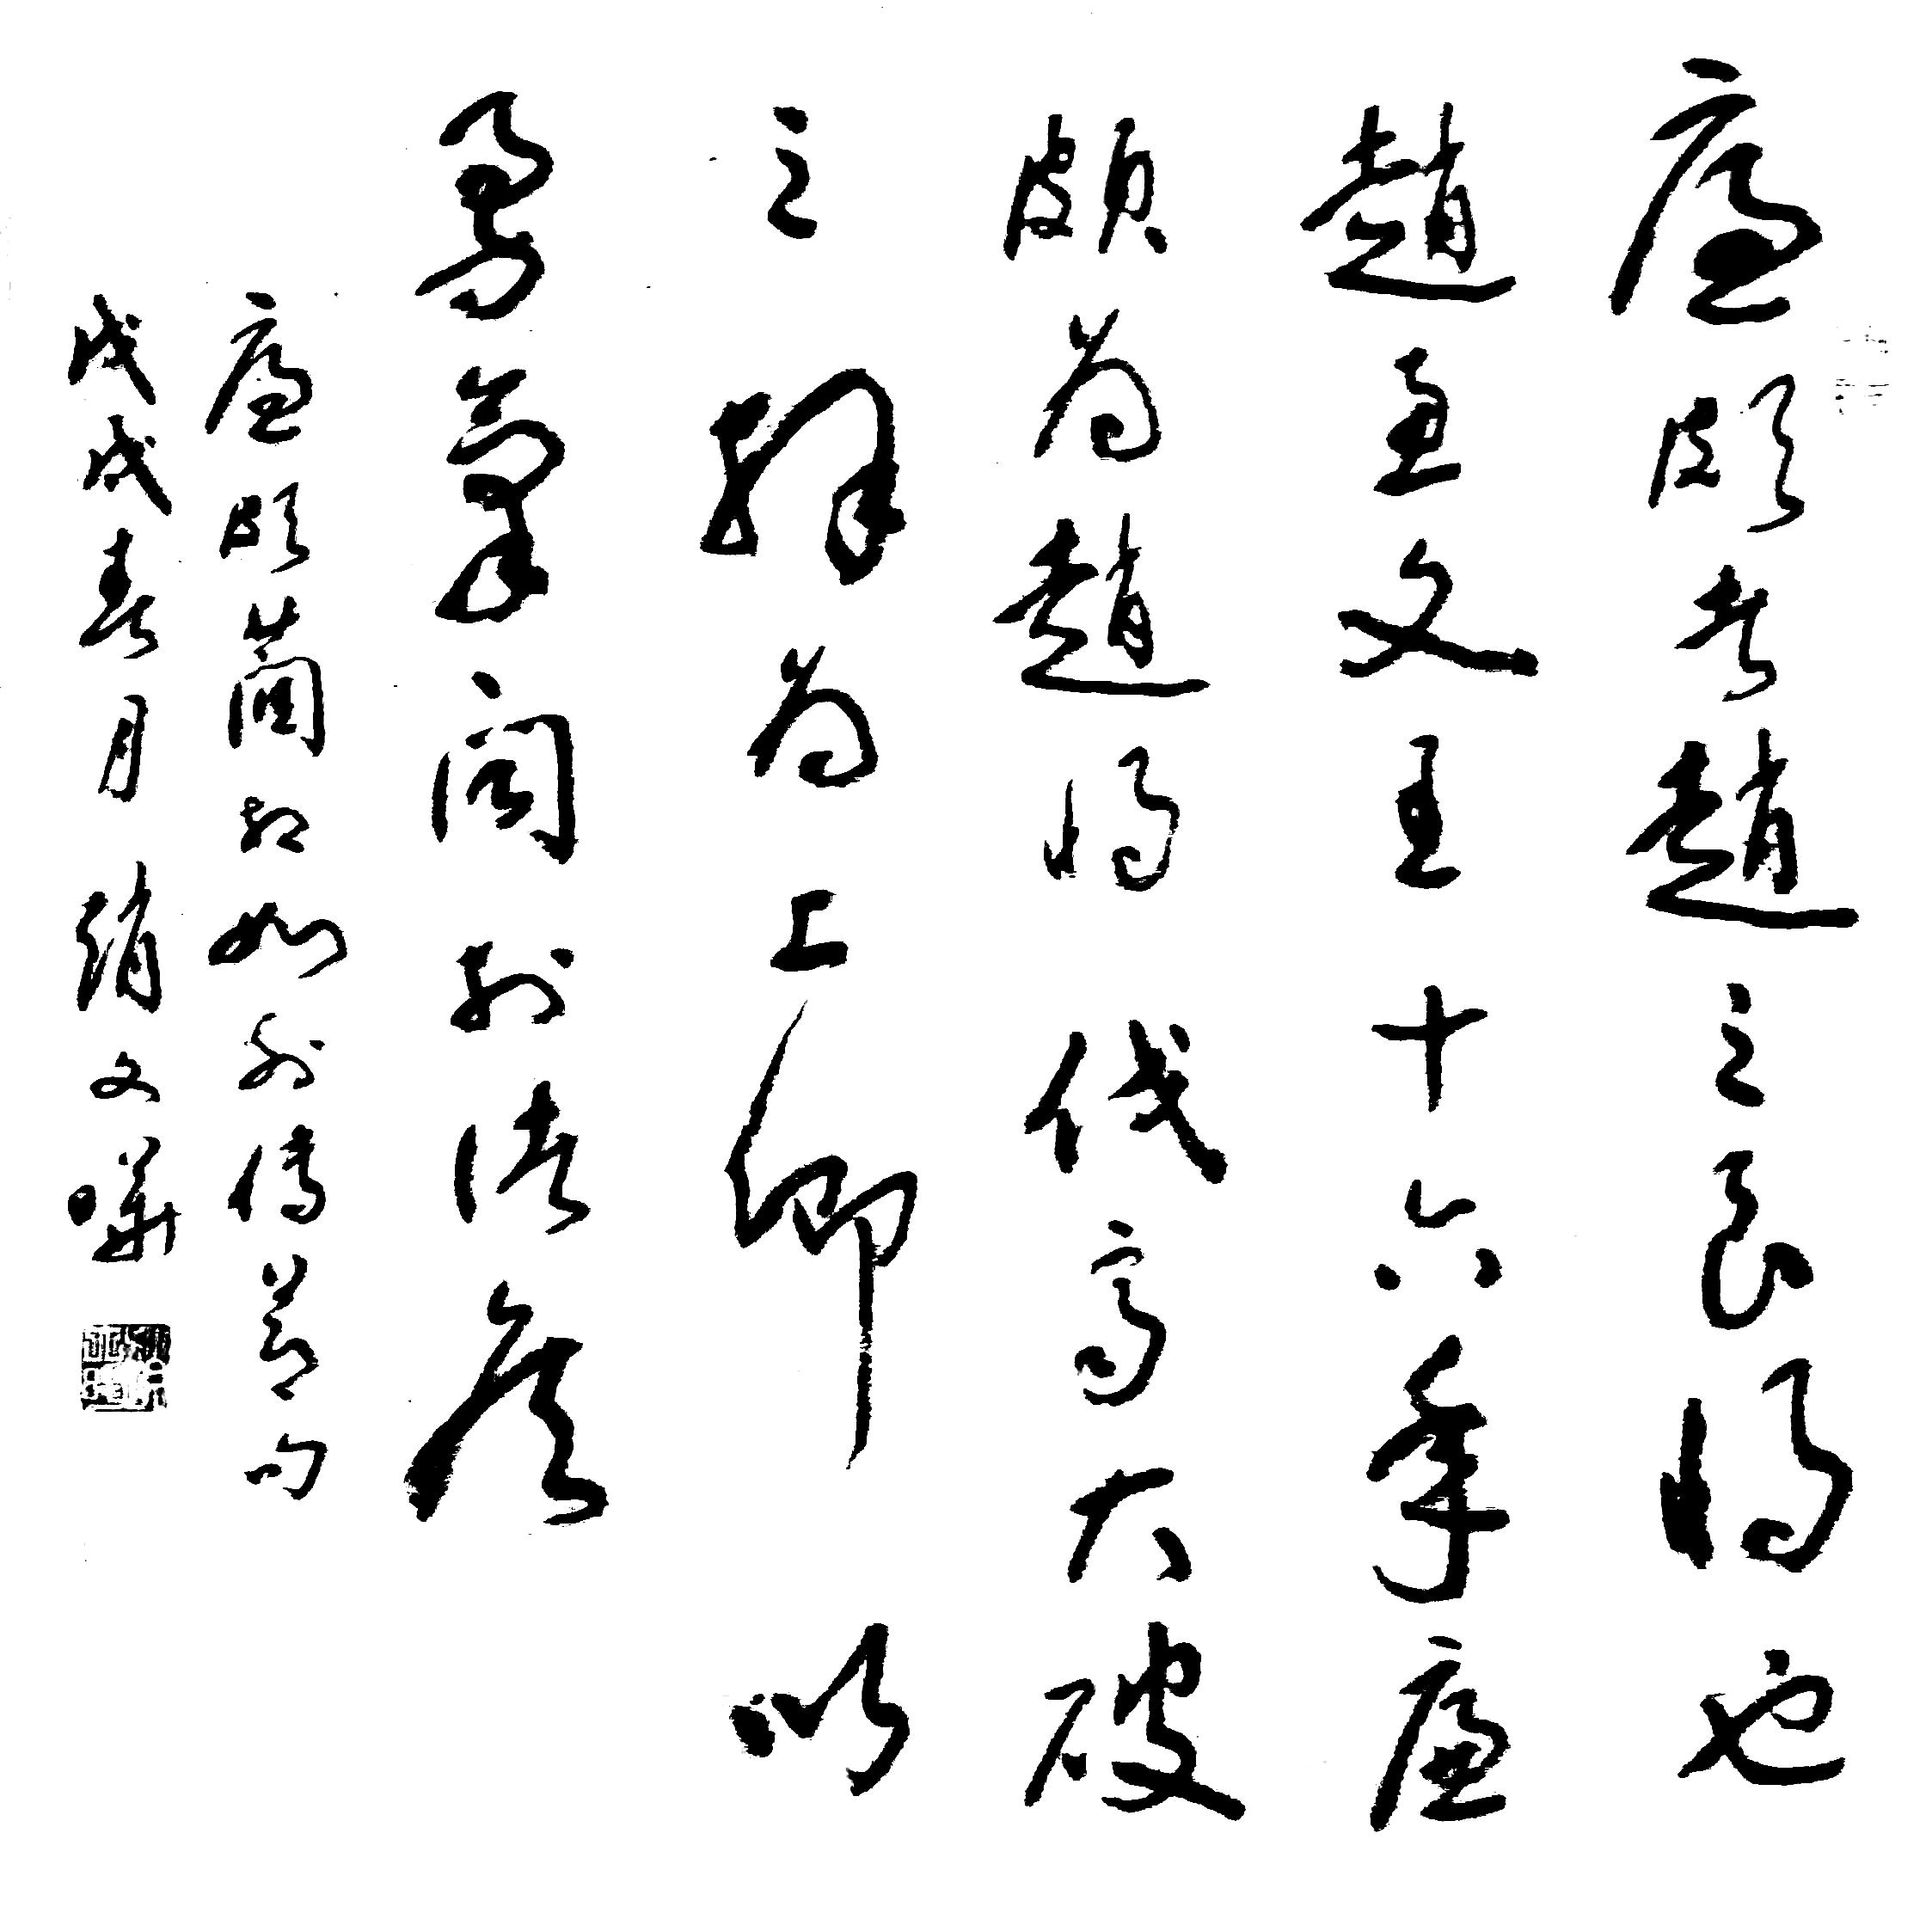 廉頗者趙之良將也
趙惠文王十六年廉
頗為趙將伐齊大破
之拜為上卿以
勇氣聞於諸侯
廉頗藺相如列傳節句
戊戌春月文